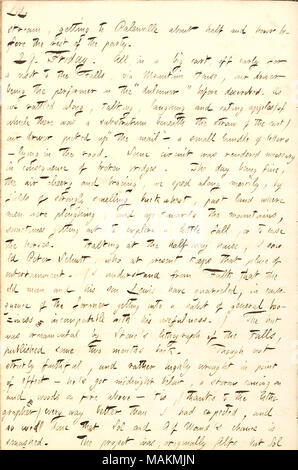 stream, getting to Palenville about half and hour be
fore the rest of the party.
29. Friday. All in a big cart off early for
a visit to the Falls via Mountain House, our driver
being the performer on the "dulcimer" before described. As
we rattled along, talking, laughing and eating apples (of
which there was a substratum beneath the straw of the cart)
our driver picked up "the mail" — a small bundle of letters
— lying in the road. Some circuit was rendered necessary
in consequence of broken bridges. The day being fine,
the air cheery and bracing, we sped along merrily, by
fields of strongly smelling buckwheat, past land where
men were ploughing and up towards the mountains,
sometimes getting out to explore a little fall or to ease
the horses. Halting at the half-way house, I saw
old Peter Schutt, who at present keeps that place of
entertainment. I understand from that the
old man and his son Lewis have quarreled, in conse
quence of the former getting into a habit of general boo-
ziness incompatible with his usefulness. The bar
was ornamented by lithograph of the Falls,
published some two months back. Though not
strictly faithful, and rather highly wrought in point
of effect — he's got midnight below, a storm coming on
and woods on fire above — 'tis, (thanks to the litho-
grapher) every way better than I had expected, and
so well done that Sol and chance is
smashed. The project was originally but Sol
a
alamy
Image ID: MAKMJN
www.alamy.com